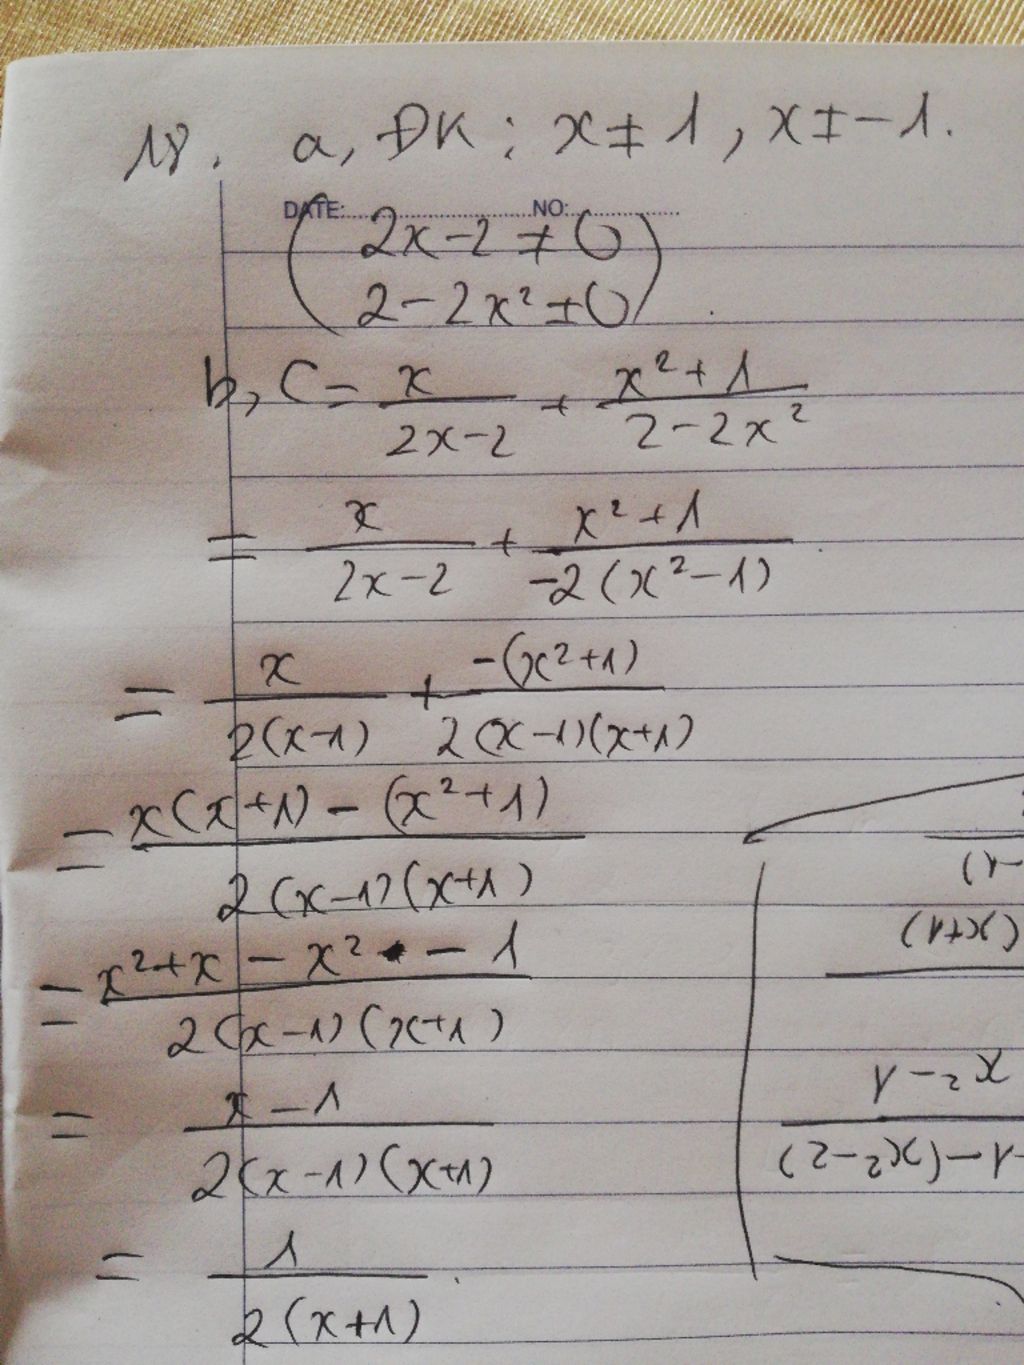 18. a, ĐK : x ≠ 1 , x ≠ -1.
DATE: NO:
( 2x - 2 ≠ 0
2 - 2x² ≠ 0 )
b, C = x/(2x-2) + (x²+1)/(2-2x²)
= x/(2x-2) + (x²+1)/(-2(x²-1))
= x/(2(x-1)) + (-(x²+1))/(2(x-1)(x+1))
= (x(x+1) - (x²+1))/(2(x-1)(x+1))
= (x²+x - x² - 1)/(2(x-1)(x+1))
= (x-1)/(2(x-1)(x+1))
= 1/(2(x+1)).
(x+1)
x²-1